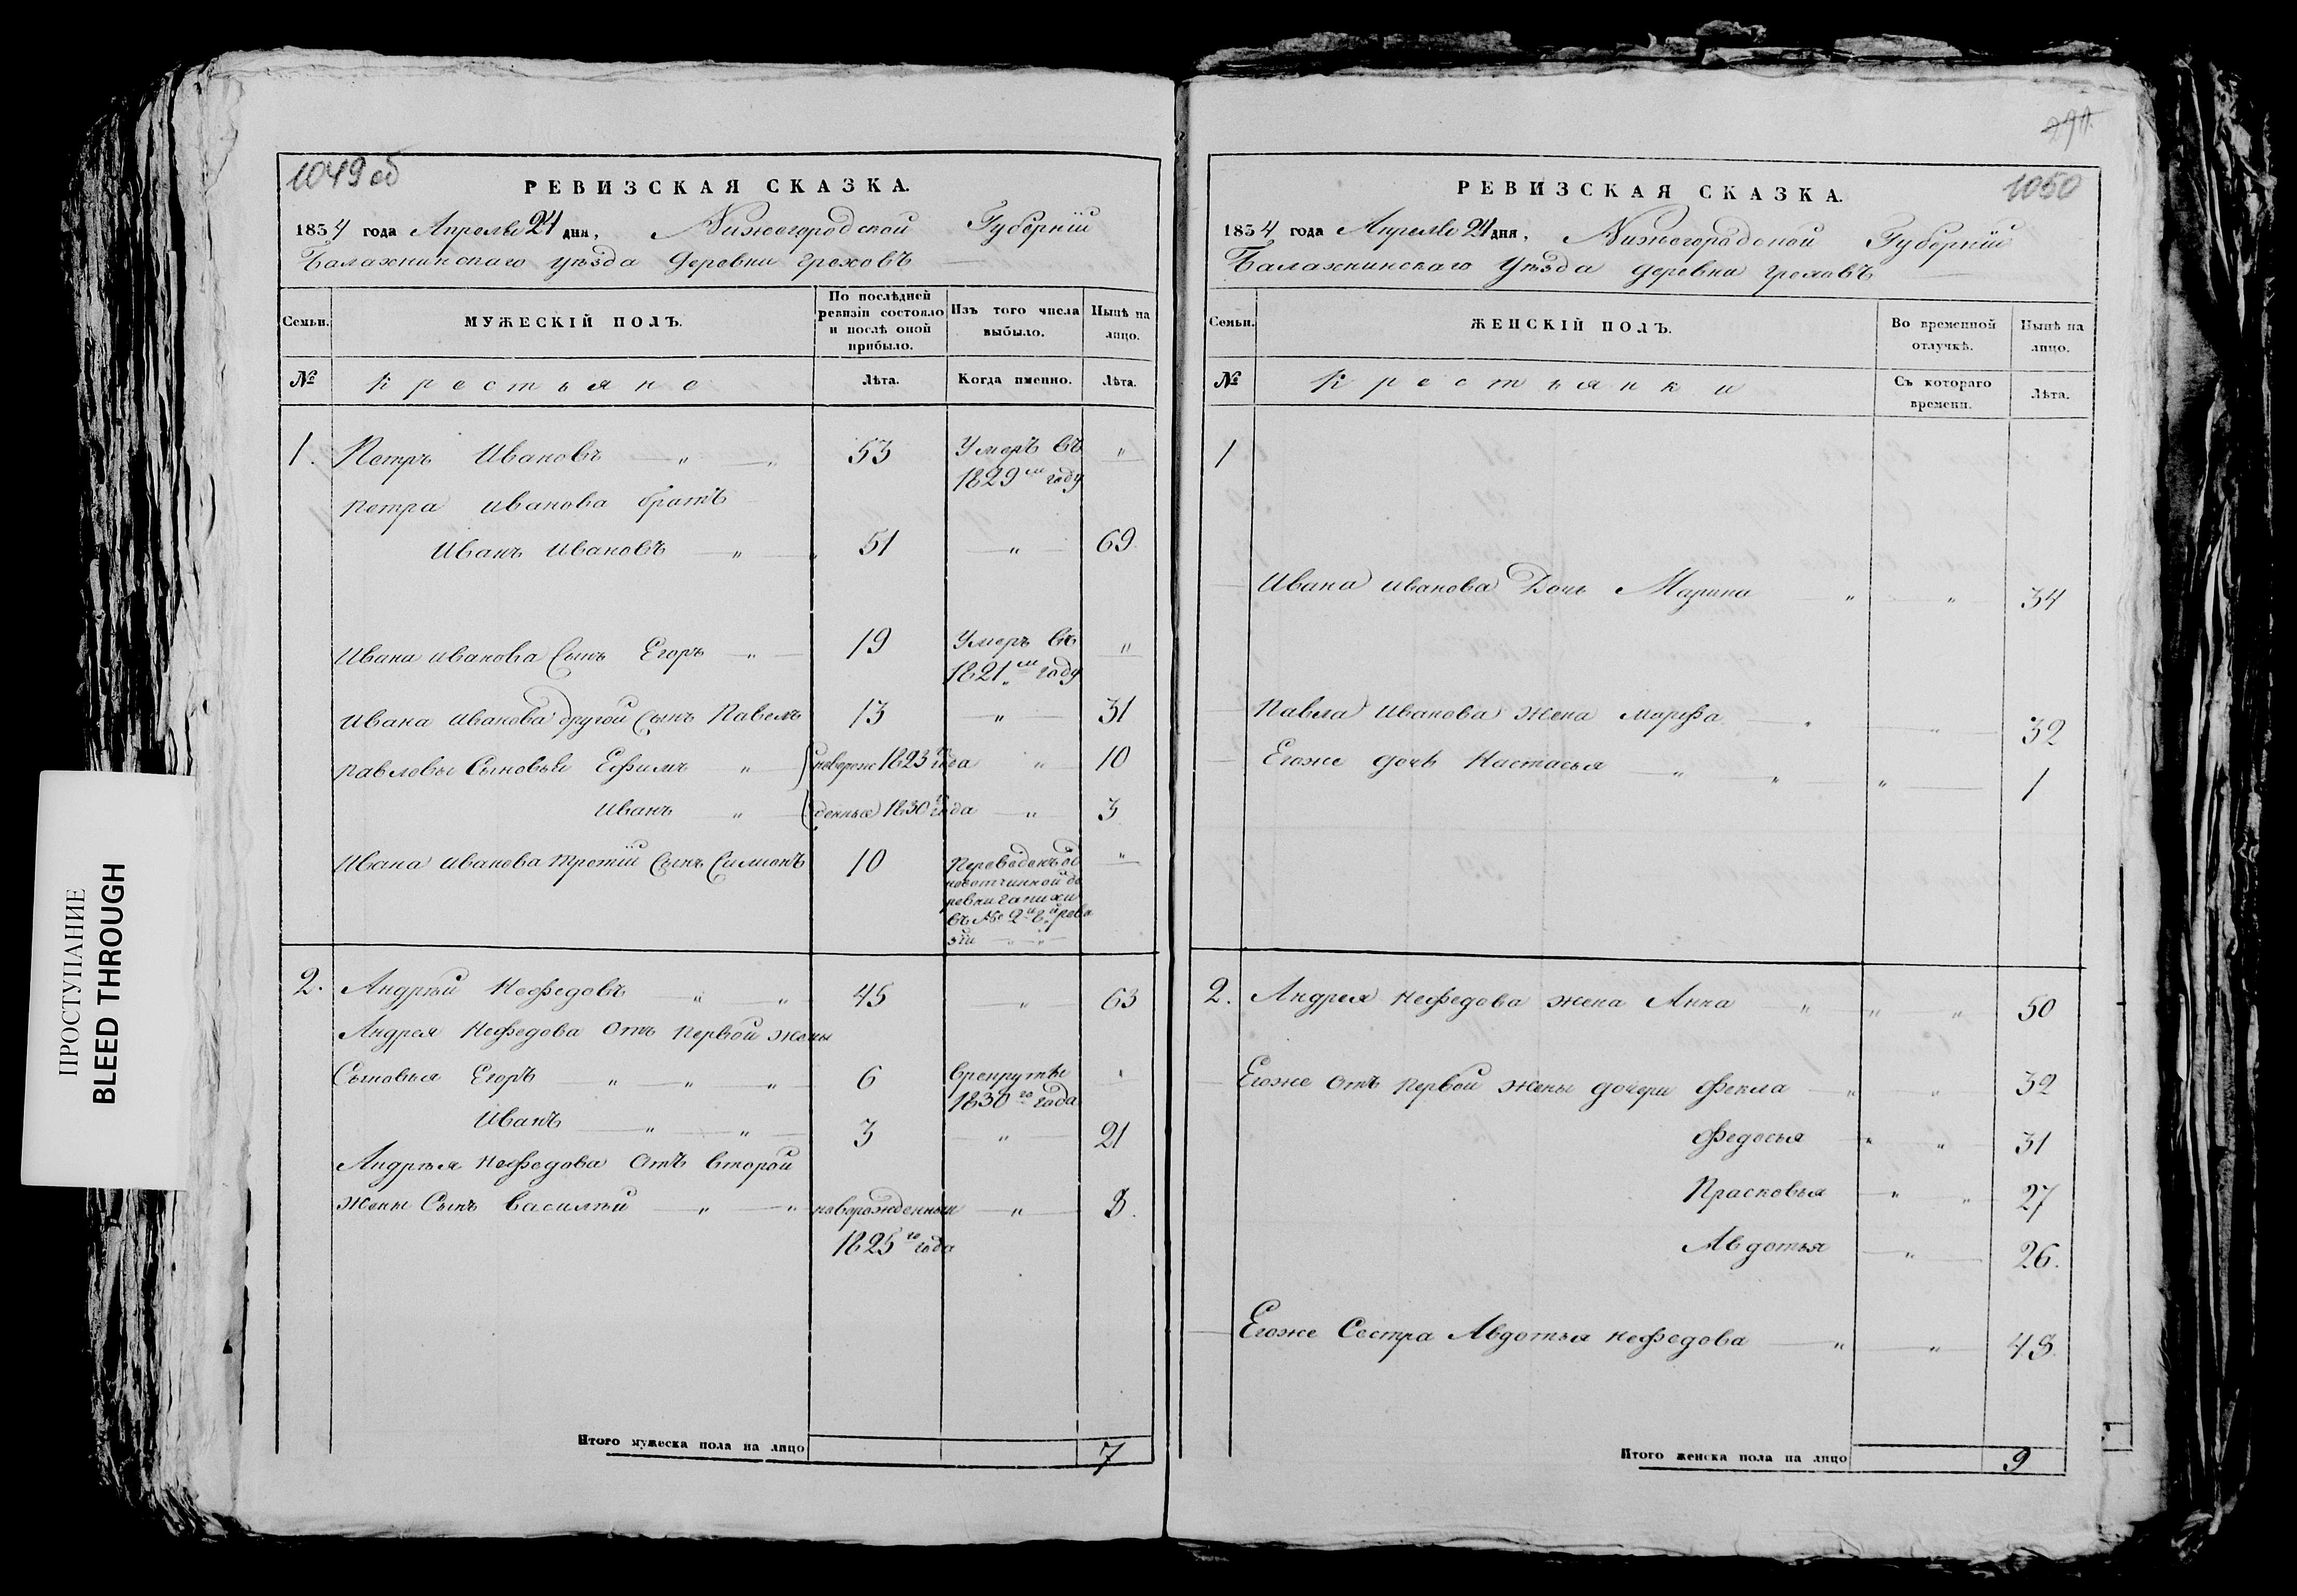 1049 об
РЕВИЗСКАЯ СКАЗКА.
1834 года Апреля 24 дня, Нижегородской Губернiи
Балахнинскаго уѣзда Деревни Греховъ
Семьи.
МУЖЕСКIЙ ПОЛЪ.
По послѣдней ревизiи состояло и послѣ оной прибыло.
Изъ того числа выбыло.
Нынѣ на лицо.
№ Крестьяне Лѣта. Когда именно. Лѣта.
1. Петръ Ивановъ — " — " 53 Умеръ въ "
1829мъ году
Петра Иванова братъ
Иванъ Ивановъ — " — 51 — " — 69.
Ивана Иванова Сынъ Егоръ " — 19 Умеръ въ "
1821мъ году
Ивана Иванова другой Сынъ Павелъ 13 — " — 31
Павловы Сыновья Ефимъ " новорож 1823го года " 10
Иванъ " денные 1830го года — " — 3
Ивана Иванова третiй Сынъ Симионъ 10 Переведенъ од "
новотчинной де
ревни
въ № 2й 8й реви
зiи — " —
2. Андрѣй Нефедовъ " " 45 — " — 63
Андрея Нефедова Отъ Первой жены
Сыновья Егоръ " " " 6 Врекруты "
1830го года
Иванъ — " — " — 3 — " — 21
Андрѣя Нефедова Отъ второй
жены Сынъ Василѣй — " — " новорожденный — " — 8.
1825го года
Итого мужеска пола на лицо 7
1050
РЕВИЗСКАЯ СКАЗКА.
1834 года Апреля 24 дня, Нижегородской Губернiи
Балахнинскаго Уѣзда деревни Греховъ —
Семьи.
ЖЕНСКIЙ ПОЛЪ.
Во временной отлучкѣ.
Нынѣ на лицо.
№ Крестьянки Съ котораго времени. Лѣта.
1
Ивана Иванова Дочь Марина " — " — 34
Павла Иванова Жена Марфа — " — " — 32
Егоже дочь Настасья — " — " " — 1
2. Андрея Нефедова жена Анна " — " — " 50
Егоже Отъ Первой жены дочери Фекла — " " 32
Федосья " " 31
Прасковья — " " 27
Авдотья — " — 26.
Егоже Сестра Авдотья Нефедова — " — " — 48.
Итого женска пола на лицо 9
ПРОСТУПАНИЕ
BLEED THROUGH